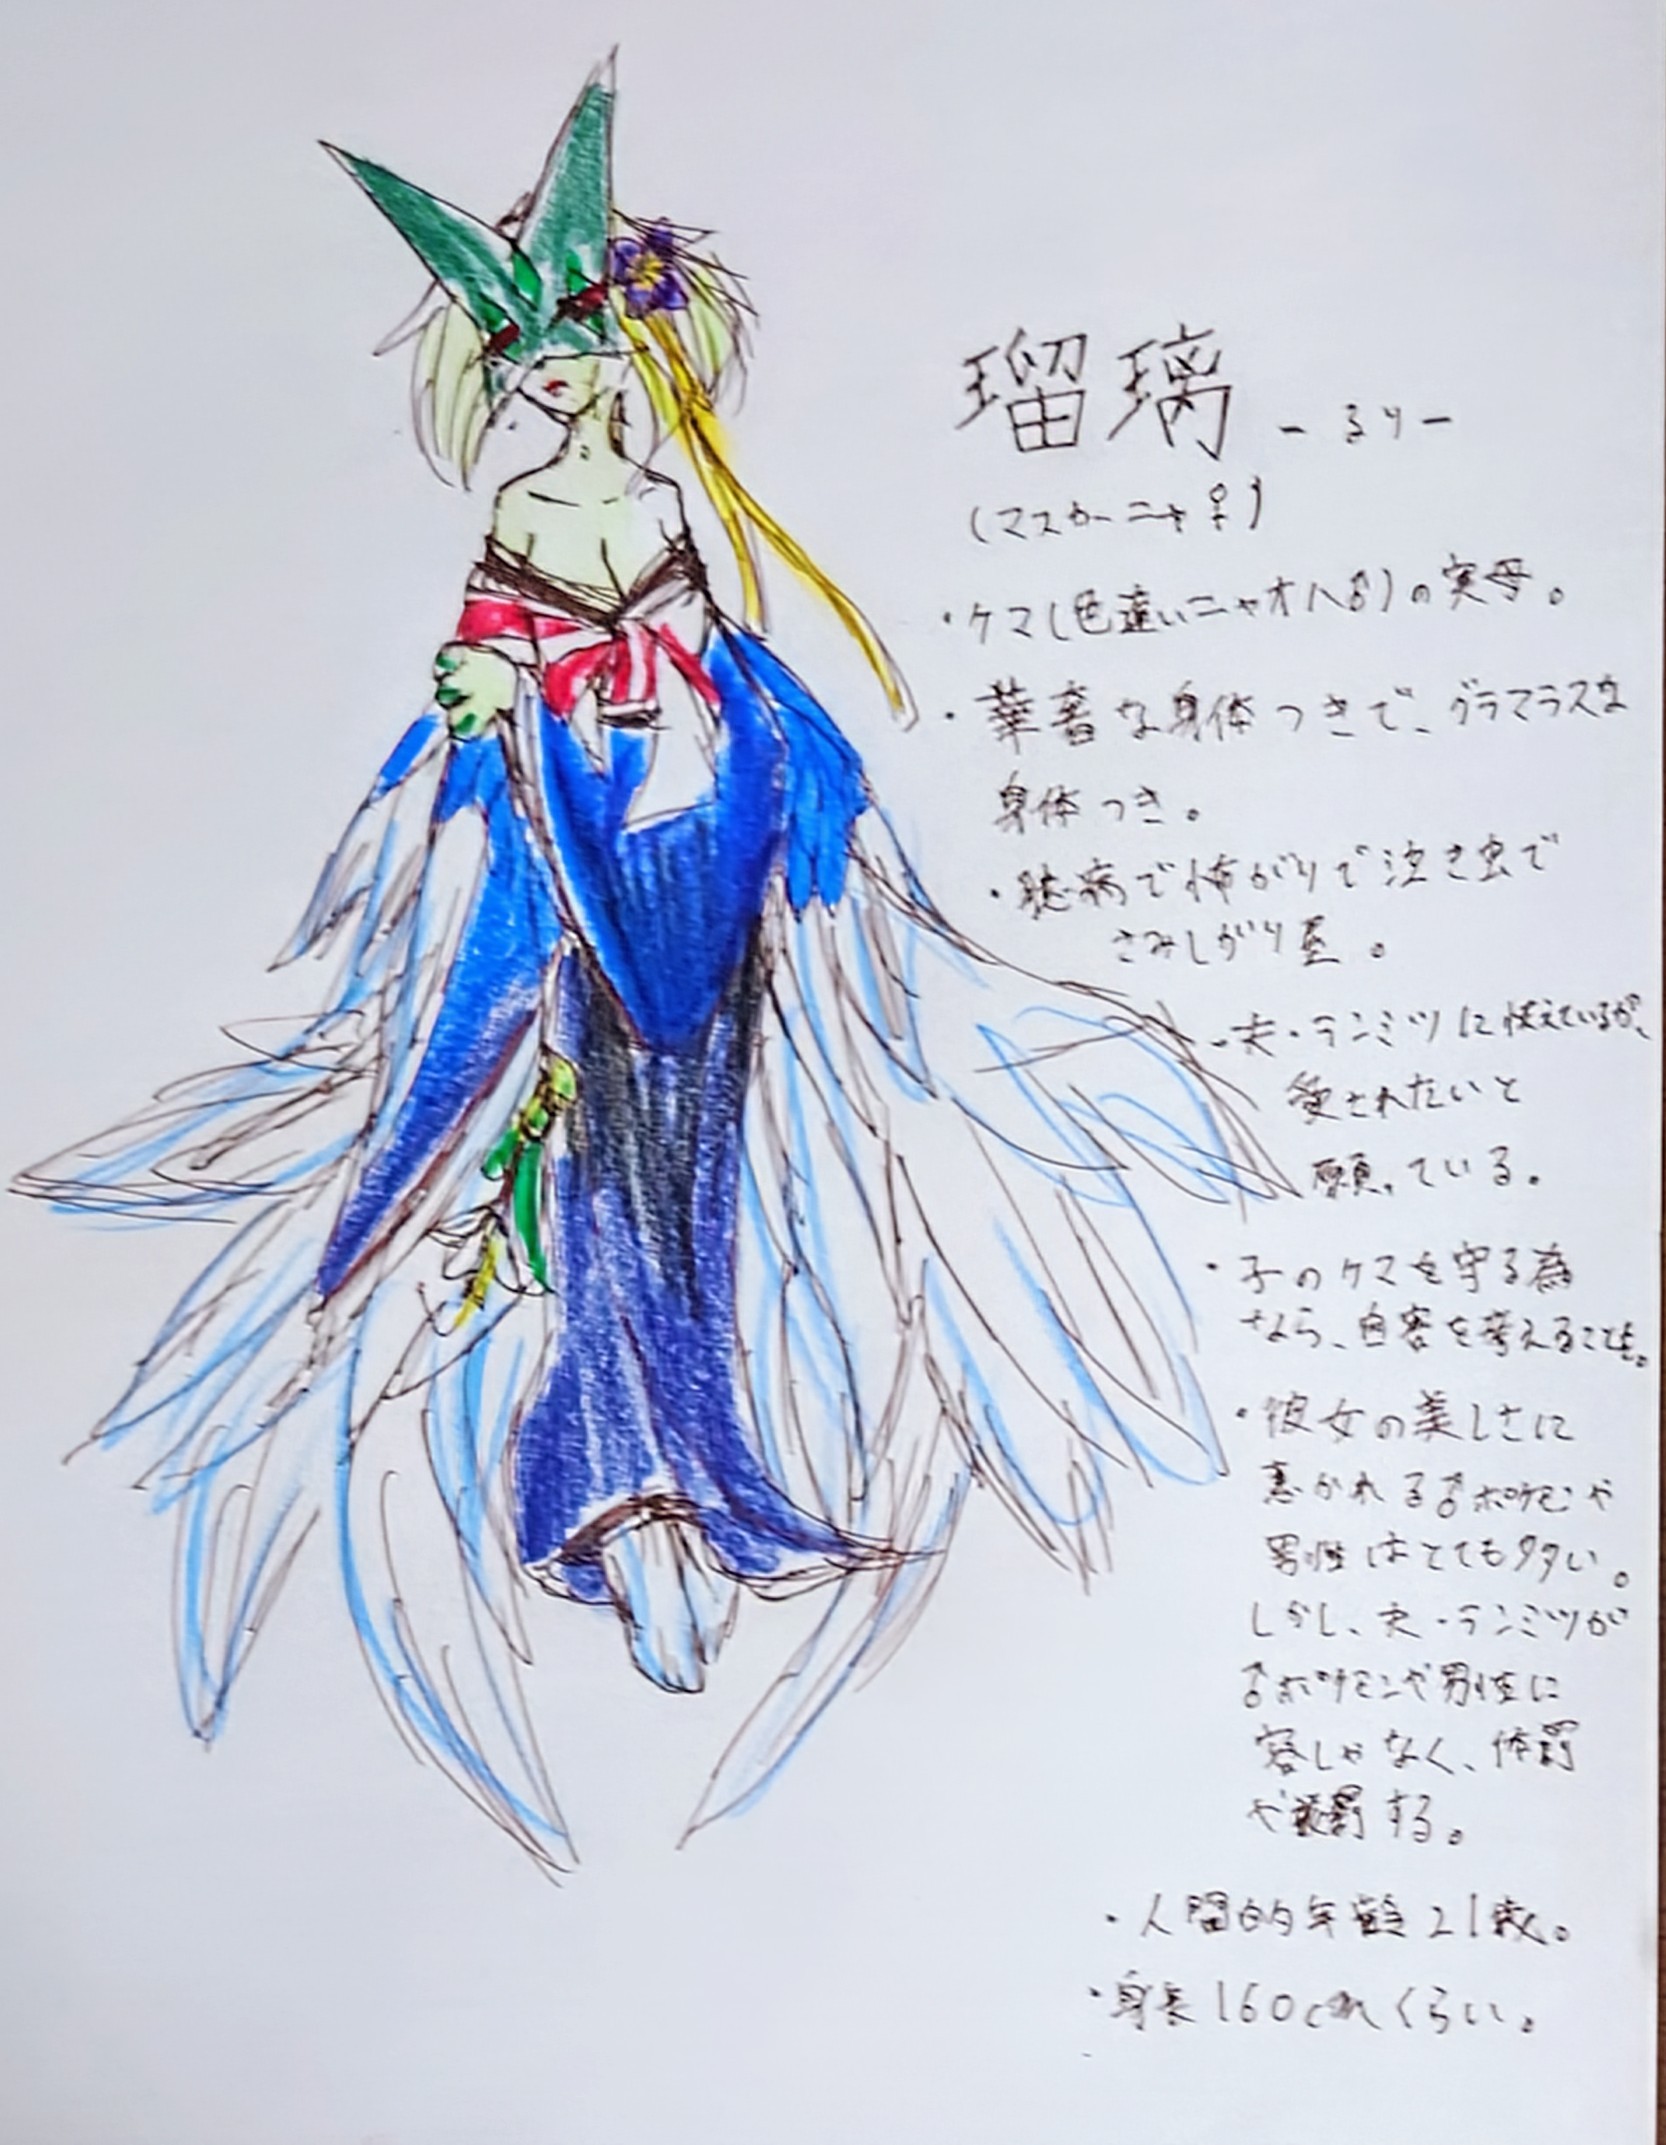 瑠璃 -るり-
(マスカーニャ♀)
・ケマ(色違いニャオハ♂)の実母。
・華奢な身体つきで、グラマラスな
身体つき。
・臆病で怖がりで泣き虫で
さみしがり屋。
・夫・ランミツに怯えているが、
愛されたいと
願っている。
・子のケマを守る為
なら、自害を考えることも。
・彼女の美しさに
惹かれる♂ポケモンや
男性はとても多い。
しかし、夫・ランミツが
♂ポケモンや男性に
容しゃなく、体罰
や厳罰する。
・人間的年齢21歳。
・身長160cmくらい。